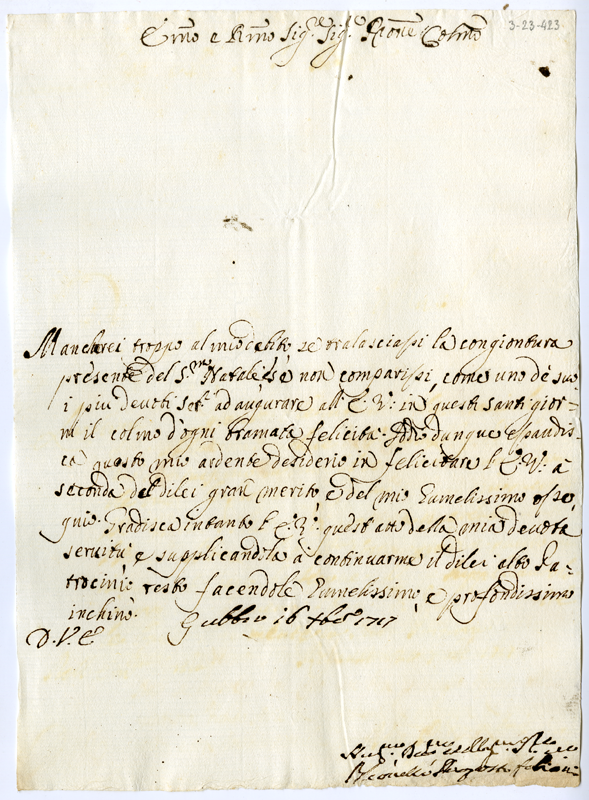 3-23-423
Emo e Rmo Sig.re Sig.re Prone Colmo
Mancherei troppo al mio debito, se tralasciassi la congiontura
presente del S.mo Natale, e se non comparissi, come uno de suo
i più devoti ser.i ad augurare all' E. V. in questi santi gior-
ni il colmo d'ogni bramata felicità. Iddio dunque esaudis-
ca questo mio ardente desiderio in felicitare l' E. V. a
seconda del dilei gran merito e del mio humelissimo osse-
quio. Gradisca intanto l' E. V. quest'atto della mia devota
servitù, e supplicandola à continuarme il dilei alto Pa-
trocinio resto facendole humelissimo, e profondissimo
inchino.
Gubbio 16 Xbre 1717
D. V. E.
Hu.mo Dev.mo